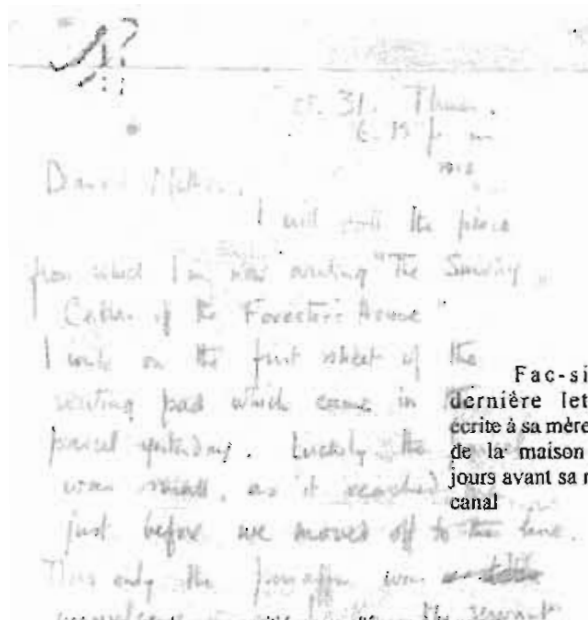 ct. 31. Thurs.
6.15 p m
Dearest Mother.
I will call the place
from which I'm now writing "The Smoky
Cellar of the Forester's House"
I write on the first sheet of the
writing pad which came in the
parcel yesterday. Luckily the parcel
was small, as it reached
just before we moved off to the line.
Thus only the paraffin was
the servant
Fac-si
dernière let
écrite à sa mère
de la maison
jours avant sa
canal